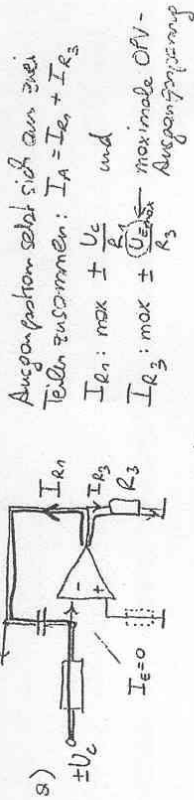 a)
±U_C
I_E=0
-
+
I_R1
I_R3
R_3
Ausgangsstrom setzt sich aus zwei
Teilen zusammen: I_A = I_R1 + I_R3
I_R1 : max ± U_C / R_1 und
I_R3 : max ± U_Emax / R_3 ← maximale OPV-
Ausgangsspannung